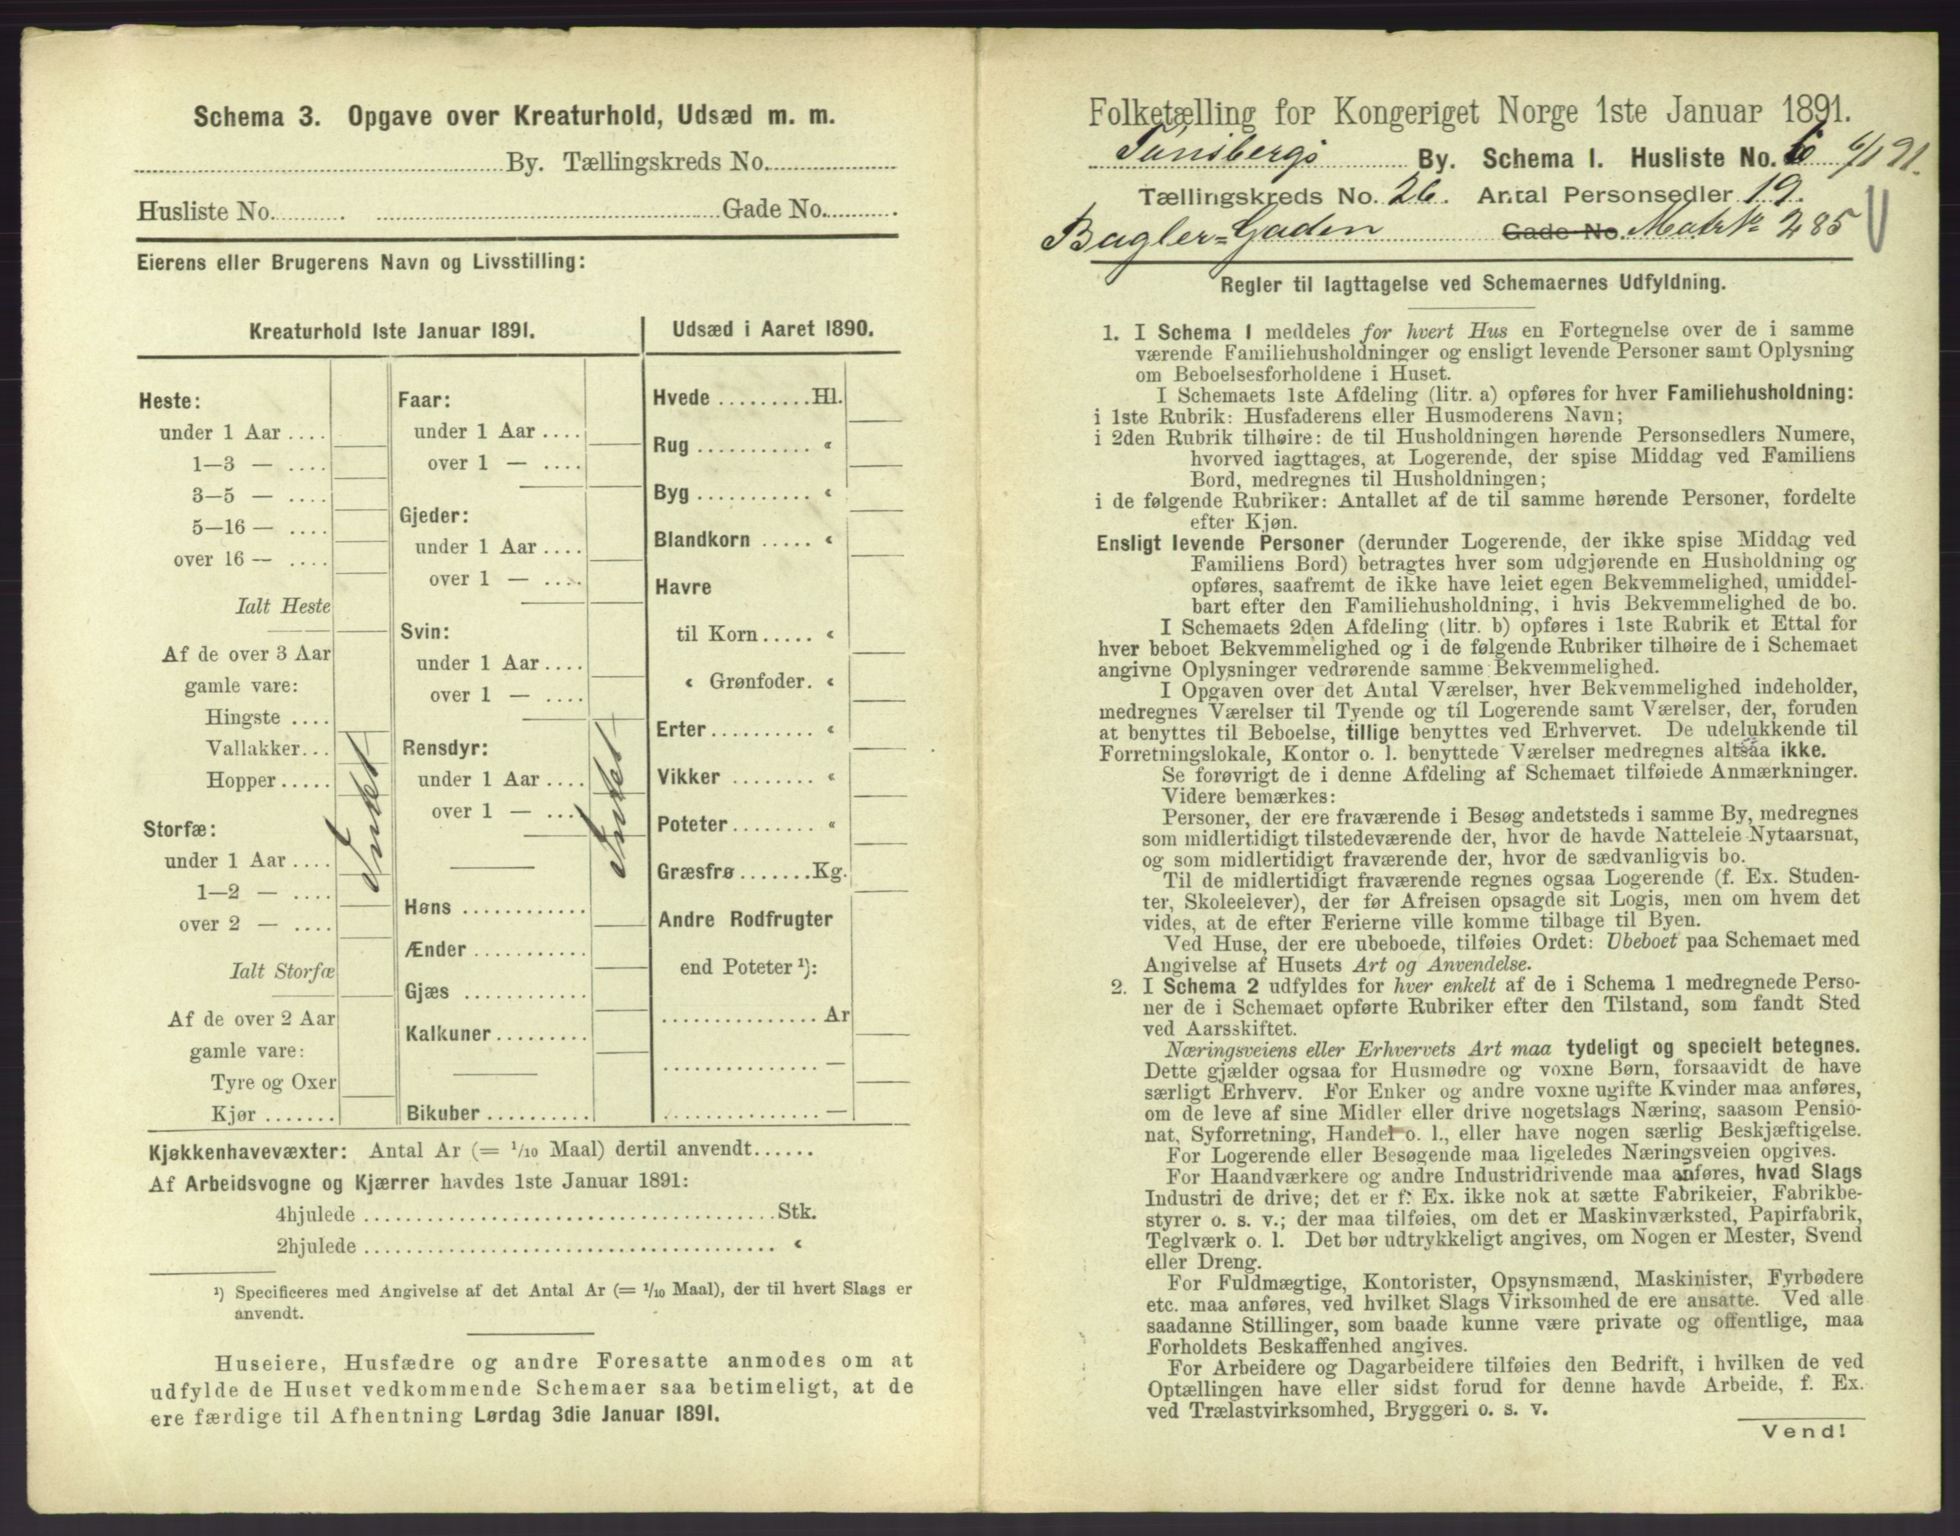 Schema 3. Opgave over Kreaturhold, Udsæd m. m.
By. Tællingskreds No.
Husliste No. Gade No.
Eierens eller Brugerens Navn og Livsstilling:
Kreaturhold 1ste Januar 1891.
Heste:
under 1 Aar ....
1—3 — ....
3—5 — ....
5—16 — ....
over 16 — ....
Ialt Heste
Af de over 3 Aar
gamle vare:
Hingste ....
Vallakker...
Hopper.....
Storfæ:
under 1 Aar ....
1—2 — ....
over 2 — ....
Ialt Storfæ
Af de over 2 Aar
gamle vare:
Tyre og Oxer
Kjør .......
Intet
Faar:
under 1 Aar ....
over 1 — ....
Gjeder:
under 1 Aar ....
over 1 — ....
Svin:
under 1 Aar ....
over 1 — ....
Rensdyr:
under 1 Aar ....
over 1 — ....
Høns ............
Ænder ...........
Gjæs ............
Kalkuner.........
Bikuber ..........
Intet
Udsæd i Aaret 1890.
Hvede .........Hl.
Rug .......... «
Byg ........... «
Blandkorn ..... «
Havre
til Korn ..... «
« Grønfoder. «
Erter.......... «
Vikker ........ «
Poteter........ «
Græsfrø .......Kg.
Andre Rodfrugter
end Poteter ¹):
............... Ar
............... —
............... —
Kjøkkenhavevæxter: Antal Ar (= 1/10 Maal) dertil anvendt......
Af Arbeidsvogne og Kjærrer havdes 1ste Januar 1891:
4hjulede ........................................Stk.
2hjulede ........................................ «
¹) Specificeres med Angivelse af det Antal Ar (= 1/10 Maal), der til hvert Slags er
anvendt.
Huseiere, Husfædre og andre Foresatte anmodes om at
udfylde de Huset vedkommende Schemaer saa betimeligt, at de
ere færdige til Afhentning Lørdag 3die Januar 1891.
Folketælling for Kongeriget Norge 1ste Januar 1891.
Tunsbergs By. Schema 1. Husliste No. 6 6/1 91.
Tællingskreds No. 26. Antal Personsedler 19.
Bagler=Gaden Gade No. Matr № 285
Regler til Iagttagelse ved Schemaernes Udfyldning.
1. I Schema 1 meddeles for hvert Hus en Fortegnelse over de i samme
værende Familiehusholdninger og ensligt levende Personer samt Oplysning
om Beboelsesforholdene i Huset.
I Schemaets 1ste Afdeling (litr. a) opføres for hver Familiehusholdning:
i 1ste Rubrik: Husfaderens eller Husmoderens Navn;
i 2den Rubrik tilhøire: de til Husholdningen hørende Personsedlers Numere,
hvorved iagttages, at Logerende, der spise Middag ved Familiens
Bord, medregnes til Husholdningen;
i de følgende Rubriker: Antallet af de til samme hørende Personer, fordelte
efter Kjøn.
Ensligt levende Personer (derunder Logerende, der ikke spise Middag ved
Familiens Bord) betragtes hver som udgjørende en Husholdning og
opføres, saafremt de ikke have leiet egen Bekvemmelighed, umiddel-
bart efter den Familiehusholdning, i hvis Bekvemmelighed de bo.
I Schemaets 2den Afdeling (litr. b) opføres i 1ste Rubrik et Ettal for
hver beboet Bekvemmelighed og i de følgende Rubriker tilhøire de i Schemaet
angivne Oplysninger vedrørende samme Bekvemmelighed.
I Opgaven over det Antal Værelser, hver Bekvemmelighed indeholder,
medregnes Værelser til Tyende og til Logerende samt Værelser, der, foruden
at benyttes til Beboelse, tillige benyttes ved Erhvervet. De udelukkende til
Forretningslokale, Kontor o. l. benyttede Værelser medregnes altsaa ikke.
Se forøvrigt de i denne Afdeling af Schemaet tilføiede Anmærkninger.
Videre bemærkes:
Personer, der ere fraværende i Besøg andetsteds i samme By, medregnes
som midlertidigt tilstedeværende der, hvor de havde Natteleie Nytaarsnat,
og som midlertidigt fraværende der, hvor de sædvanligvis bo.
Til de midlertidigt fraværende regnes ogsaa Logerende (f. Ex. Studen-
ter, Skoleelever), der før Afreisen opsagde sit Logis, men om hvem det
vides, at de efter Ferierne ville komme tilbage til Byen.
Ved Huse, der ere ubeboede, tilføies Ordet: Ubeboet paa Schemaet med
Angivelse af Husets Art og Anvendelse.
2. I Schema 2 udfyldes for hver enkelt af de i Schema 1 medregnede Perso-
ner de i Schemaet opførte Rubriker efter den Tilstand, som fandt Sted
ved Aarsskiftet.
Næringsveiens eller Erhvervets Art maa tydeligt og specielt betegnes.
Dette gjælder ogsaa for Husmødre og voxne Børn, forsaavidt de have
særligt Erhverv. For Enker og andre voxne ugifte Kvinder maa anføres,
om de leve af sine Midler eller drive nogetslags Næring, saasom Pensio-
nat, Syforretning, Handel o. l., eller have nogen særlig Beskjæftigelse.
For Logerende eller Besøgende maa ligeledes Næringsveien opgives.
For Haandværkere og andre Industridrivende maa anføres, hvad Slags
Industri de drive; det er f. Ex. ikke nok at sætte Fabrikeier, Fabrikbe-
styrer o. s. v.; der maa tilføies, om det er Maskinværksted, Papirfabrik,
Teglværk o. l. Det bør udtrykkeligt angives, om Nogen er Mester, Svend
eller Dreng.
For Fuldmægtige, Kontorister, Opsynsmænd, Maskinister, Fyrbødere
etc. maa anføres, ved hvilket Slags Virksomhed de ere ansatte. Ved alle
saadanne Stillinger, som baade kunne være private og offentlige, maa
Forholdets Beskaffenhed angives.
For Arbeidere og Dagarbeidere tilføies den Bedrift, i hvilken de ved
Optællingen have eller sidst forud for denne havde Arbeide, f. Ex.
ved Trælastvirksomhed, Bryggeri o. s. v.
Vend!